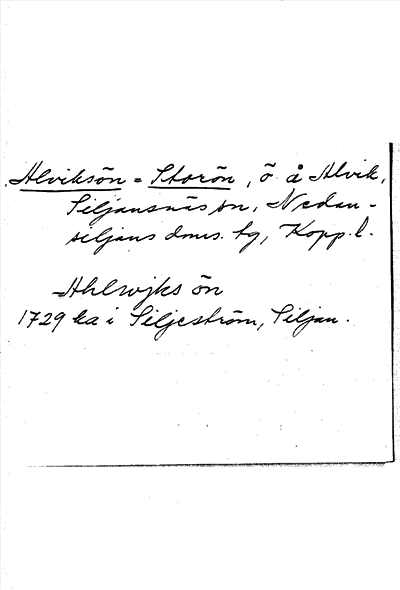 Alviksön = Storön, ö å Alvik,
Siljansnäs sn, Nedan-
siljans dms. tg, Kopp. l.
Ahlwjks ön
1729 ka i Siljeström, Siljan.